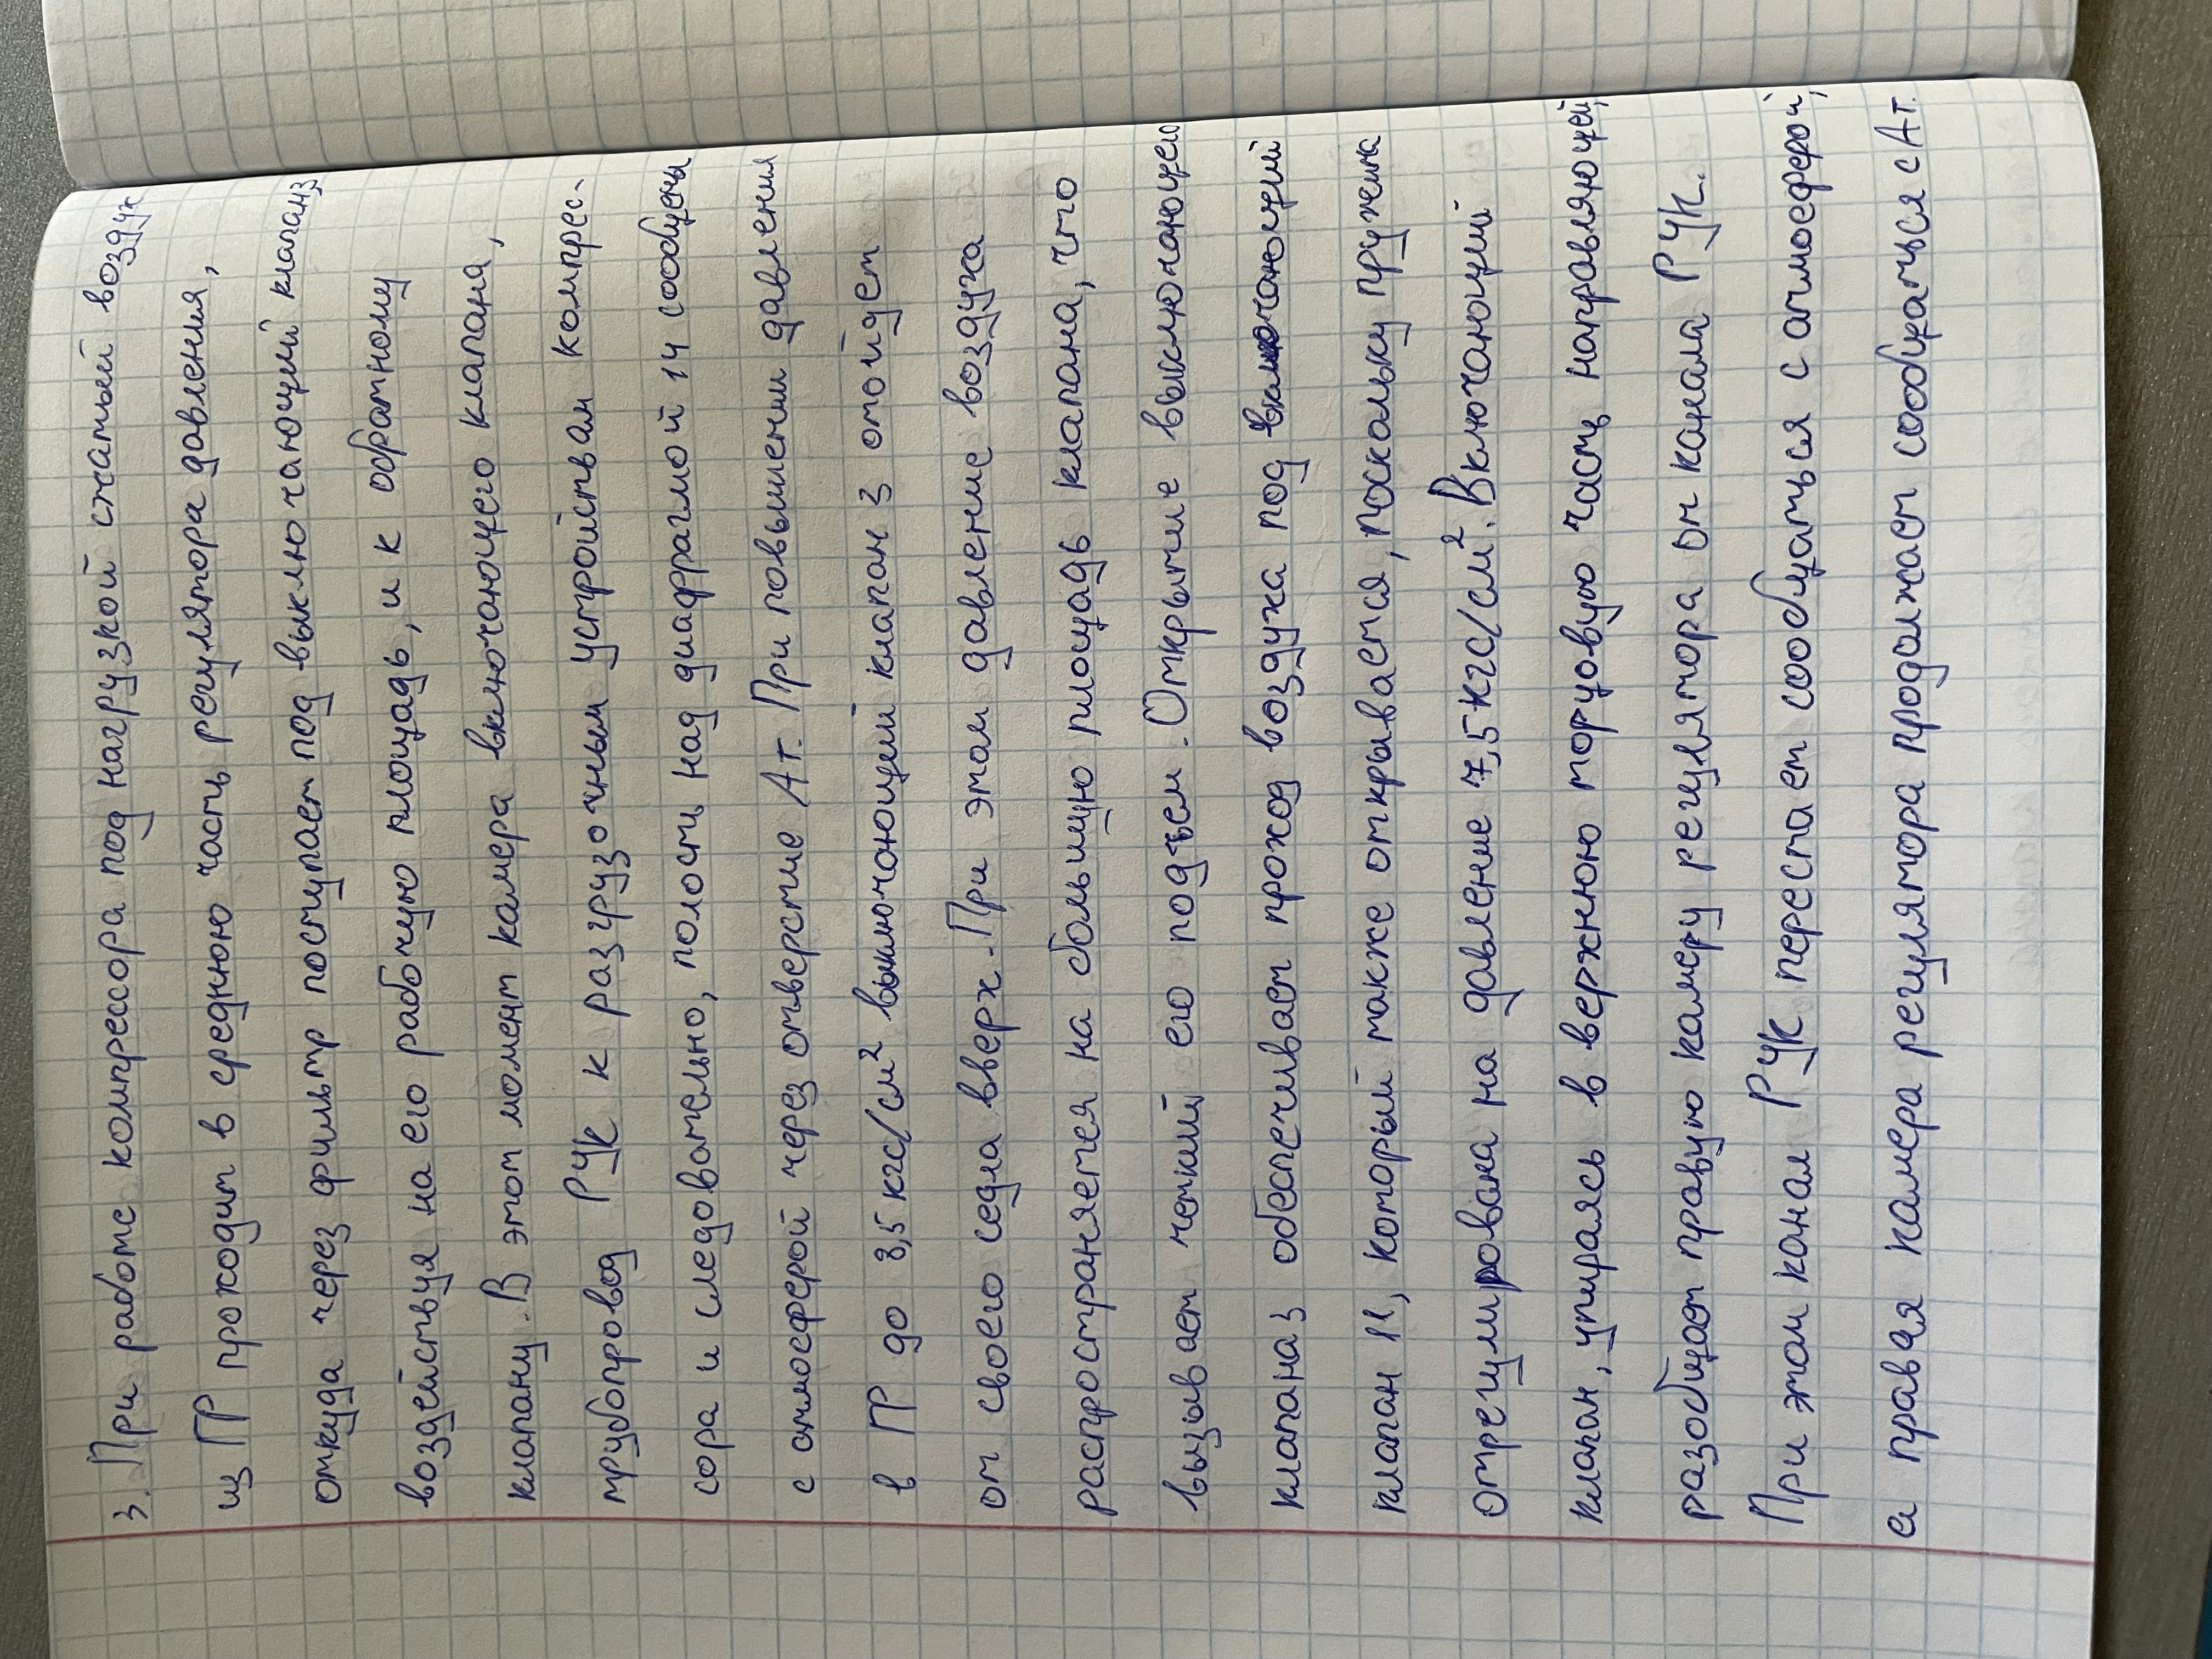 3. При работе компрессора под нагрузкой сжатый воздух
из ГР проходит в среднюю часть регулятора давления,
откуда через фильтр поступает под выключающий клапан 3
воздействуя на его рабочую площадь, и к обратному
клапану. В этот момент камера включающего клапана,
трубопровод РУК к разгрузочным устройствам компрес-
сора и следовательно, полости над диафрагмой 14 сообщены
с атмосферой через отверстие Ат. При повышении давления
в ГР до 8,5 кгс/см² выключающий клапан 3 отойдет
от своего седла вверх. При этом давление воздуха
распространяется на большую площадь клапана, что
вызывает четкий его подъем. Открытие выключающего
клапана 3 обеспечивает проход воздуха под включающий
клапан 11, который также открывается, поскольку пружина
отрегулирована на давление 7,5 кгс/см². Включающий
клапан, упираясь в верхнюю торцовую часть направляющей,
разобщает правую камеру регулятора от канала РУК.
При этом канал РУК перестает сообщаться с атмосферой,
а правая камера регулятора продолжает сообщаться с Ат.